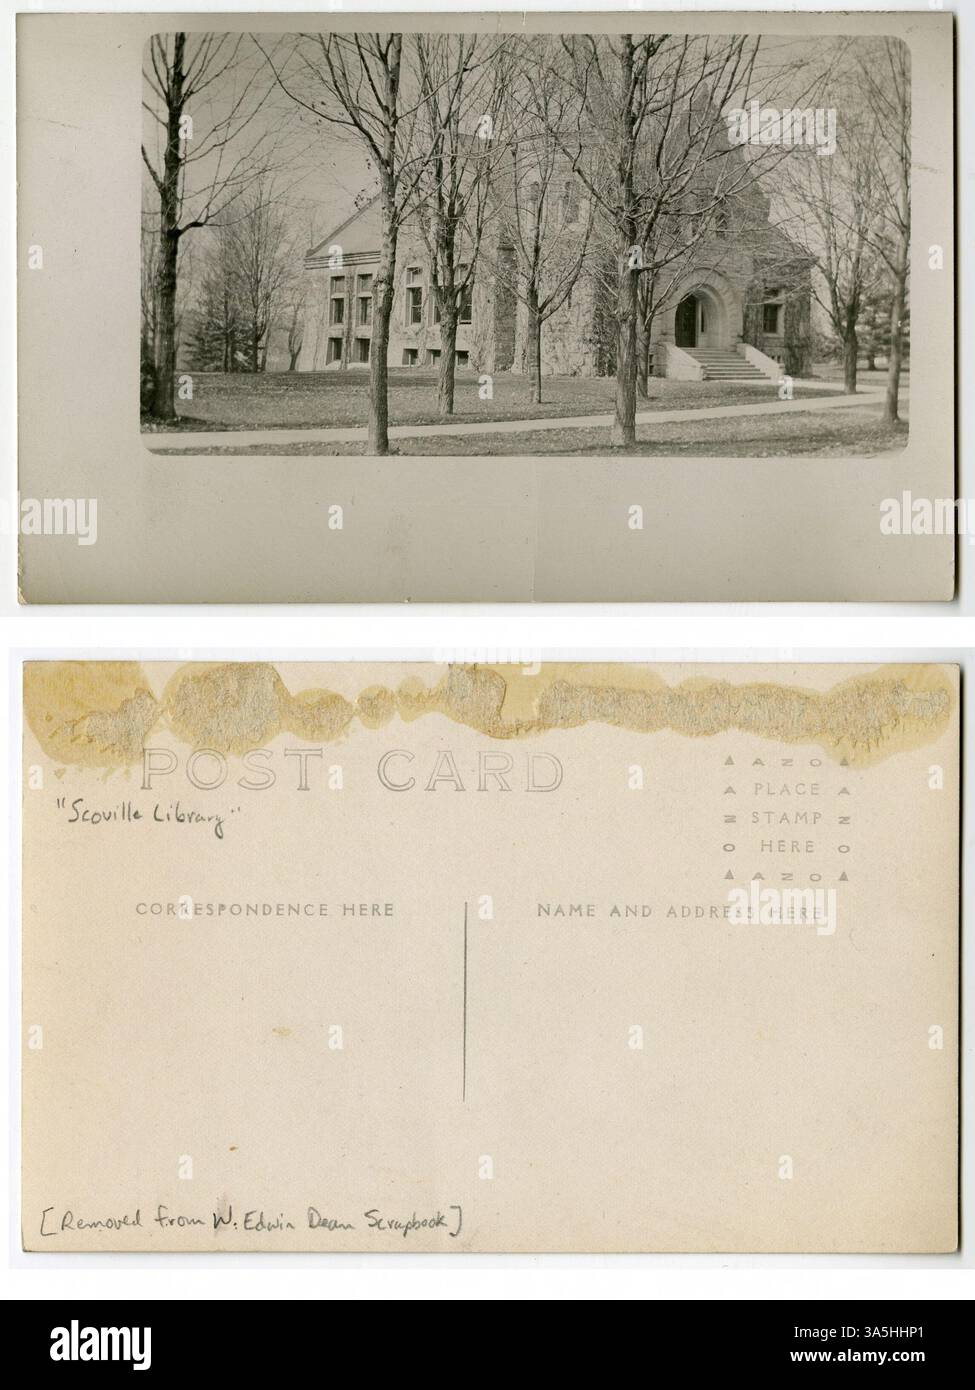 POST CARD
"Scoville Library"
▲ AZO ▲
▲ PLACE ▲
N STAMP N
O HERE O
▲ AZO ▲
CORRESPONDENCE HERE
NAME AND ADDRESS HERE
[Removed from W. Edwin Dean Scrapbook]
alamy
Image ID: 3A5HHP1
www.alamy.com